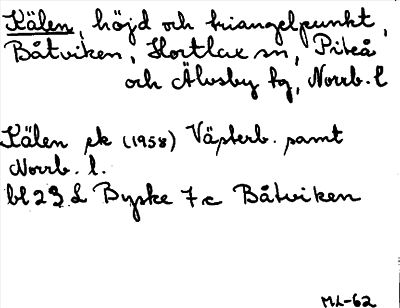 Kälen, höjd och triangelpunkt,
Båtviken, Hortlax sn, Piteå
och Älvsby tg, Norrb. l
Kälen ek (1958) Västerb. samt
Norrb. l.
bl 23 L Byske 7 c Båtviken
ML-62